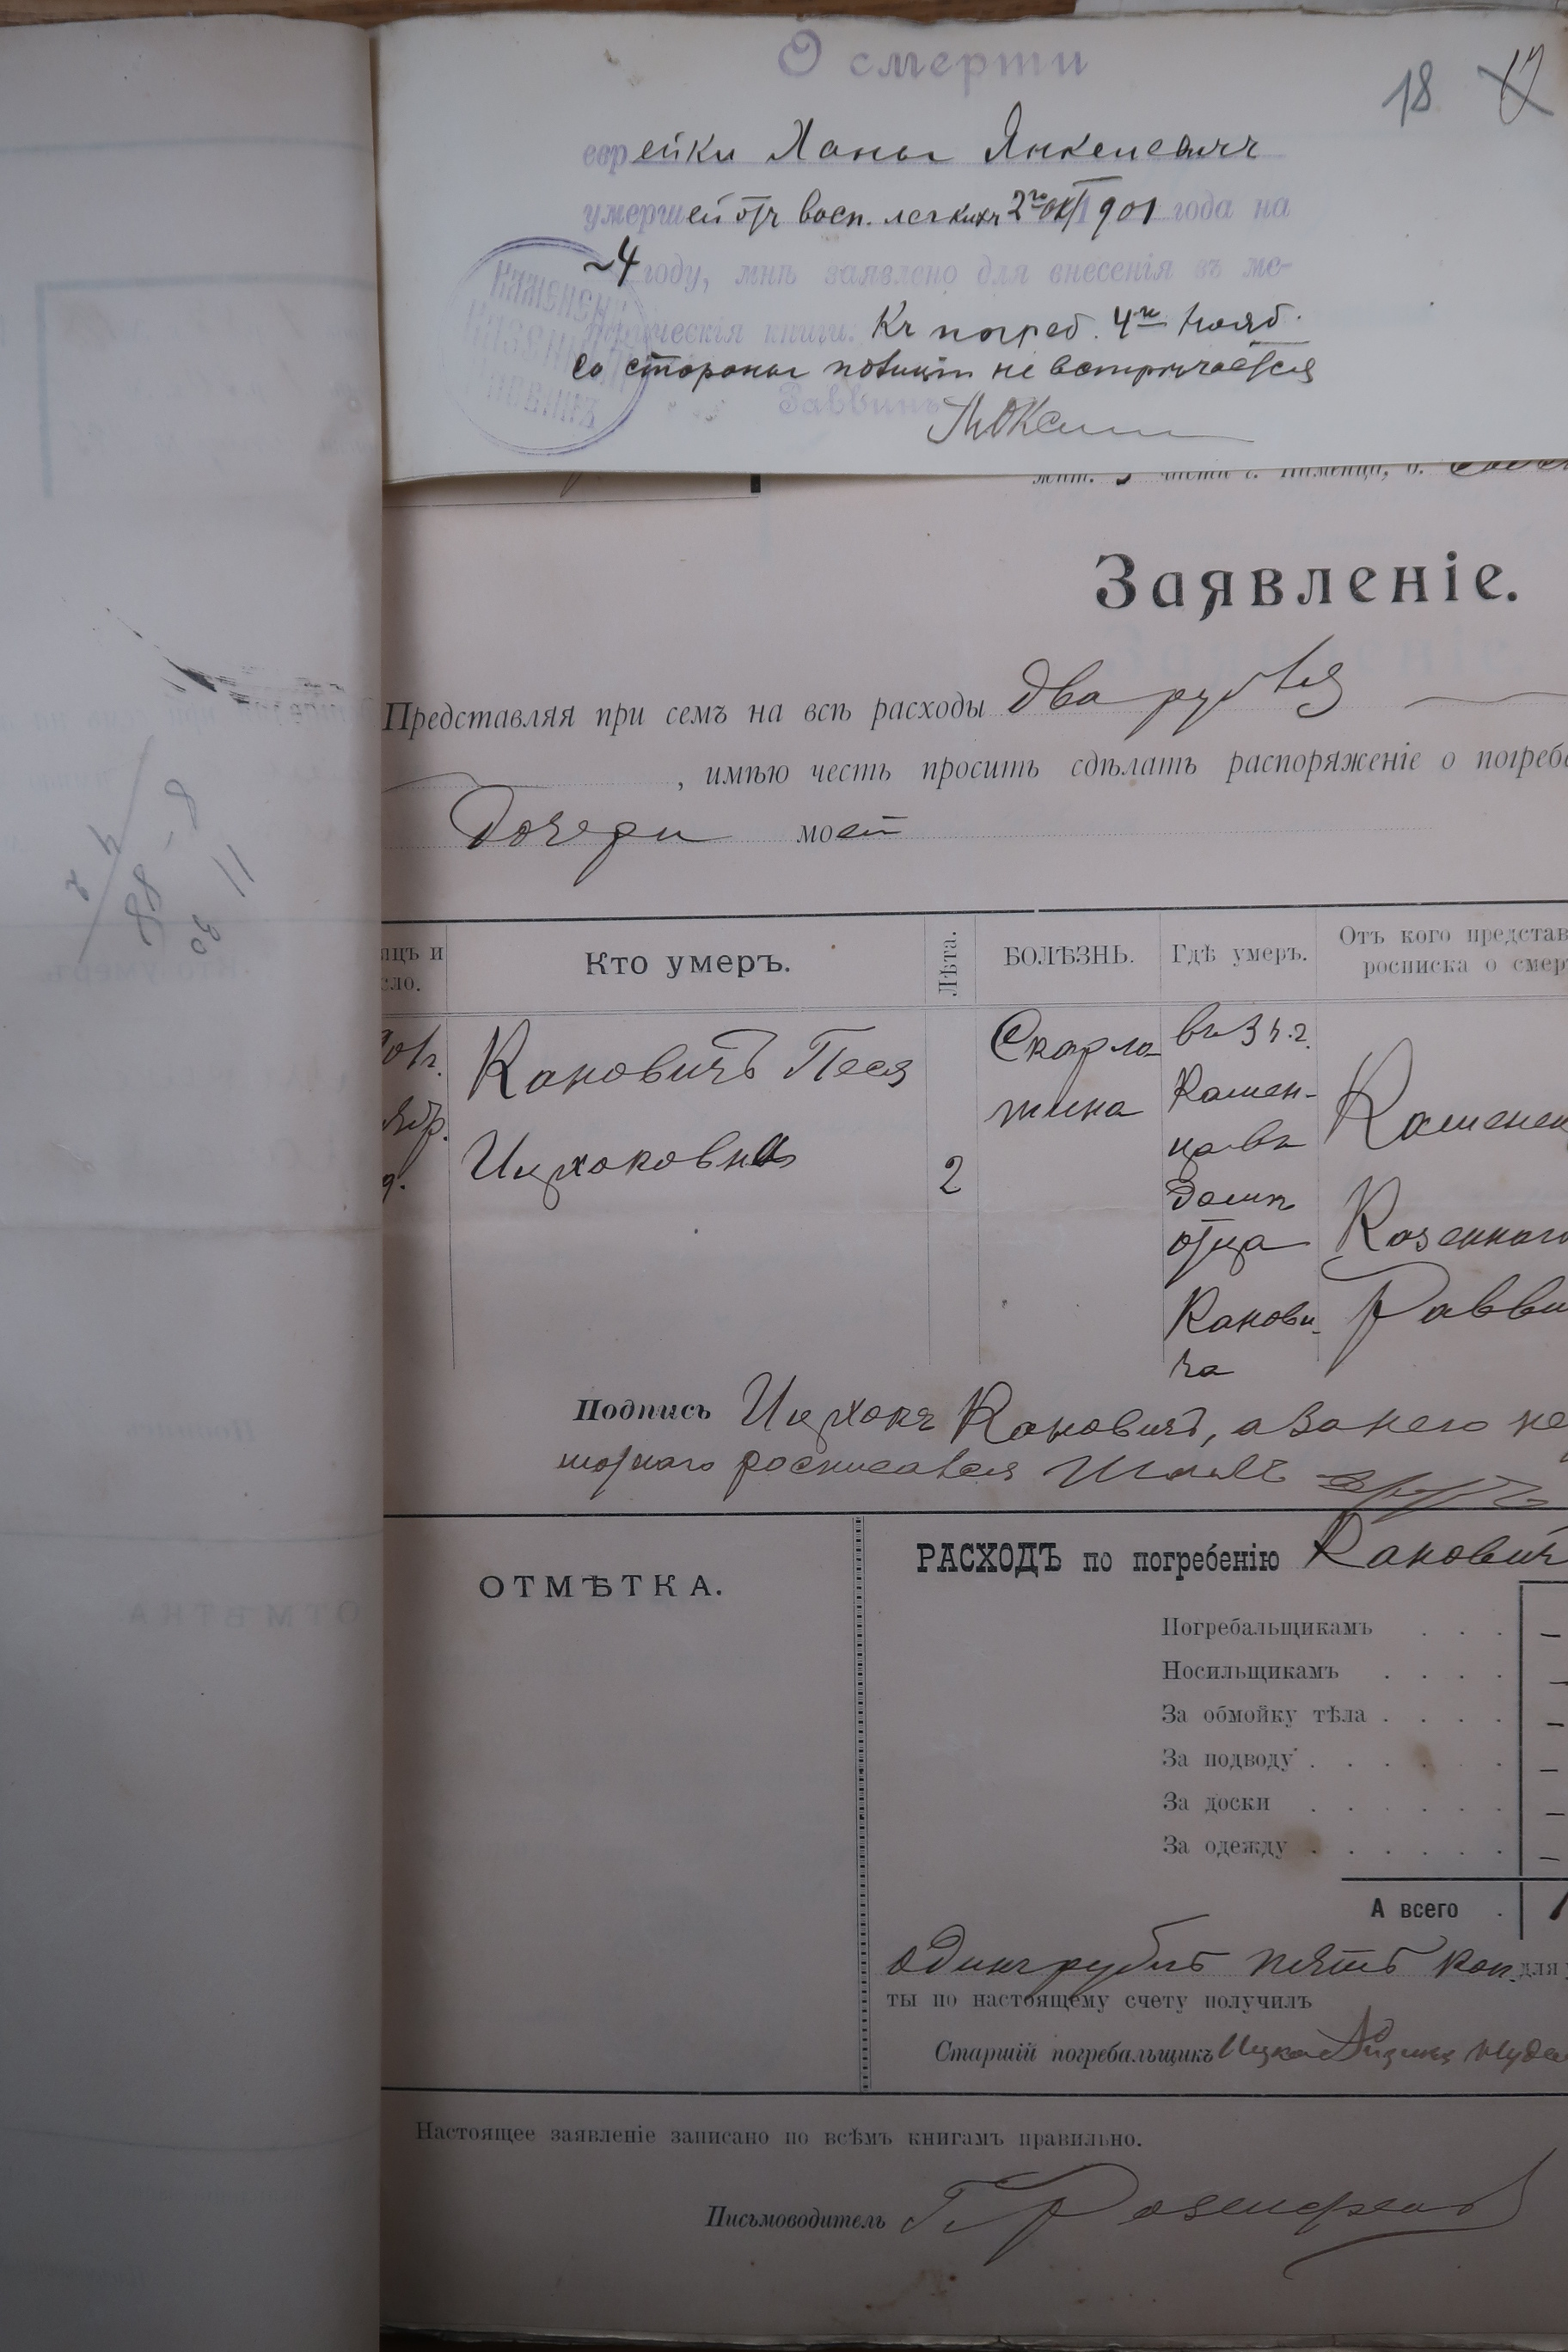 О смерти
18 17
еврейки Ханы Янкелевичъ
умершей отъ восп. легкихъ 2го 1901 года на
4 году, мнѣ заявлено для внесенія въ ме-
трическія книги. Къ погреб. 4го Нояб.
со стороны полиціи не встрѣчается
Каменец
Казен
Раввинъ
Раввинъ
жит. 3 части г. Каменца, д.
Заявленіе.
Представляя при семъ на всѣ расходы два рубля
, имѣю честь просить сдѣлать распоряженіе о погреб
Дочери моей
яцъ и
сло.
Кто умеръ.
Лѣта.
БОЛѢЗНЬ.
Гдѣ умеръ.
Отъ кого представ
росписка о смер
Кановичъ Песя
Ицхоковна
2
Скарла
тина
въ 3 ч. г.
Камен-
ца въ
домѣ
отца
Канови-
ча
Каменец
Казеннаго
Равви
Подпись Ицхокъ Кановичъ, а за него не
мотнаго росписался
ОТМѢТКА.
РАСХОДЪ по погребенію Кановичъ
Погребальщикамъ . . . –
Носильщикамъ . . . . –
За обмойку тѣла . . . . –
За подводу . . . . . . –
За доски . . . . . . –
За одежду . . . . . . –
А всего . 1
одинъ рубль пять коп. для
ты по настоящему счету получилъ
Старшій погребальщикъ Ицко
Настоящее заявленіе записано по всѣмъ книгамъ правильно.
Письмоводитель Г. Розенфельд